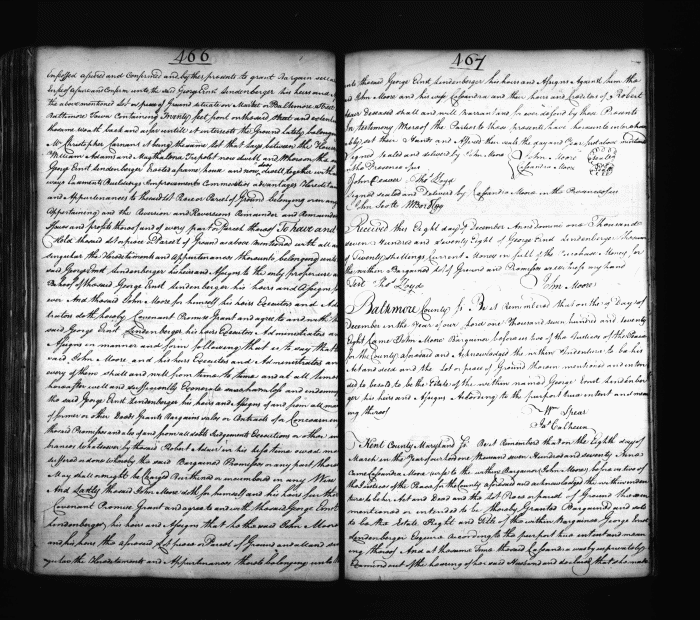 466
Confirmed and by these presents to grant Bargain
the said George Ernst Lindenberger his heirs and
the above mentioned Lot or piece of Ground situate on Market or Baltimore Street
Baltimore Town Containing Twenty feet front on the said street and
the same width back and
Mr Christopher Carnan it being the same Lot that lays between the House
William Adams and now dwell and whereon the
George Ernst Lindenberger Erected a frame house and now dwell together with
ways Easements Buildings Improvements Commodities advantages
and Appurtenances to the said Lot Piece or Parcel of Ground belonging or in any
Appertaining and the Reversion and Reversions Remainder and Remainders
Issues and profits thereof and of every part or Parcel thereof To have and
Hold the said Lot or piece or Parcel of Ground as above mentioned with all and
singular the Hereditaments and Appurtenances thereunto belonging unto
said George Ernst Lindenberger his heirs and Assigns to the only proper use and
Behoof of the said George Ernst Lindenberger his heirs and Assigns for
ever And the said John Moore for himself his heirs Executors and
doth hereby Covenant Promise Grant and agree to and with the
said George Ernst Lindenberger his heirs Executors Administrators and
Assigns in manner and form following that is to say that
said John Moore and his heirs Executors and Administrators and
every of them shall and will from time to time and at all times
hereafter well and sufficiently Exonerate save harmless and
the said George Ernst Lindenberger his heirs and Assigns of and from all
of former or other Deeds Grants Bargains sales or Contracts of or Concerning
the said Premises and also of and from all debts Judgements Executions or other
by the said Robert Adair in his life time
suffered or done whereby the said Bargained Premises or any part thereof
May shall or might be Charged or incumbered in any Wise
And Lastly the said John Moore doth for himself and his heirs further
Covenant Promise Grant and agree to and with the said George Ernst
Lindenberger his heirs and Assigns that he the said John Moore
and his heirs the aforesaid Lot piece or Parcel of Ground and all and
singular the Hereditaments and Appurtenances thereto belonging unto
467
the said George Ernst Lindenberger his heirs and Assigns Against him the
said John Moore and his wife Cassandra and their heirs and Creditors of Robert
Adair Deceased shall and will warrant and for ever defend by these Presents
In testimony Whereof the Parties to these presents have hereunto
set their Hands and Affixed their seals the day and Year first above mentioned
signed sealed and delivered by John Moore John Moore
in the Presence of us Cassandra Moore
Tho Lloyd
signed sealed and Delivered by Cassandra Moore in the Presence of us
John Scott
Received this Eight day of December Anno Domini one Thousand
seven Hundred and seventy Eight of George Ernst Lindenberger Thousand
Current Money in full of the Purchase Money for
the within Bargained Lot of Ground and Premises as witness my hand
Test Tho Lloyd John Moore
Baltimore County Be it remembered that on the day of
December in the Year of our Lord one Thousand seven hundred and seventy
Eight Came John Moore Bargainor before us two of the Justices of the Peace
for the County aforesaid and Acknowledged the within Indenture to be his
Act and deed and the Lot or piece of Ground therein mentioned and
to be the Estate of the within named George Ernst Lindenber
ger his heirs and Assigns According to the purport true intent and mean
ing thereof Wm Spear
Jas Calhoun
Kent County Maryland Be it Remembered that on the Eighth day of
March in the Year of our Lord one Thousand seven Hundred and seventy Nine
Came Cassandra Moore wife to the within Bargainor John Moore before us two of
the Justices of the Peace for the County aforesaid and acknowledged the within
to be her Act and Deed and the Lot Piece or parcel of Ground therein
mentioned or intended to be thereby Granted Bargained and sold
to be the Estate Right and Title of the within Bargainee George Ernst
Lindenberger Esquire According to the purport true intent and mean
ing thereof And at the same time the said Cassandra was by us privately
Examined out of the hearing of her said Husband and declared that she made